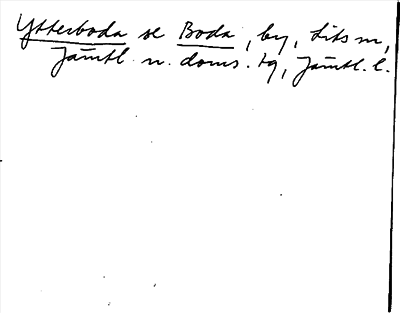 Ytterboda se Boda, by, Lits sn,
Jämtl. n. doms. tg, Jämtl. l.